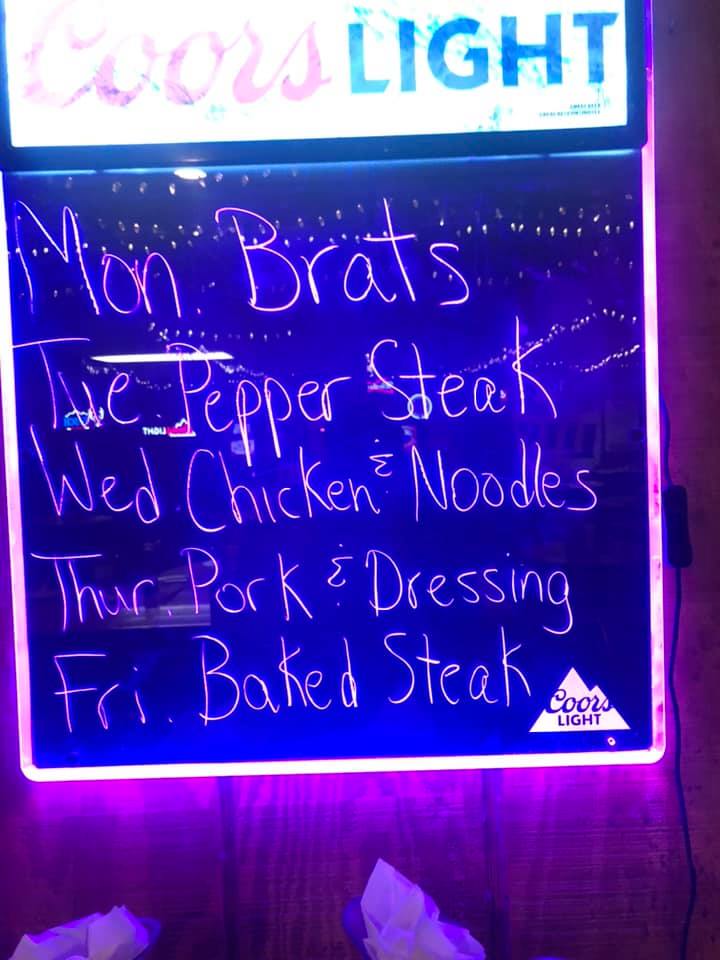 Coors LIGHT
Mon. Brats
Tue Pepper Steak
Wed Chicken & Noodles
Thur. Pork & Dressing
Fri. Baked Steak
Coors
LIGHT